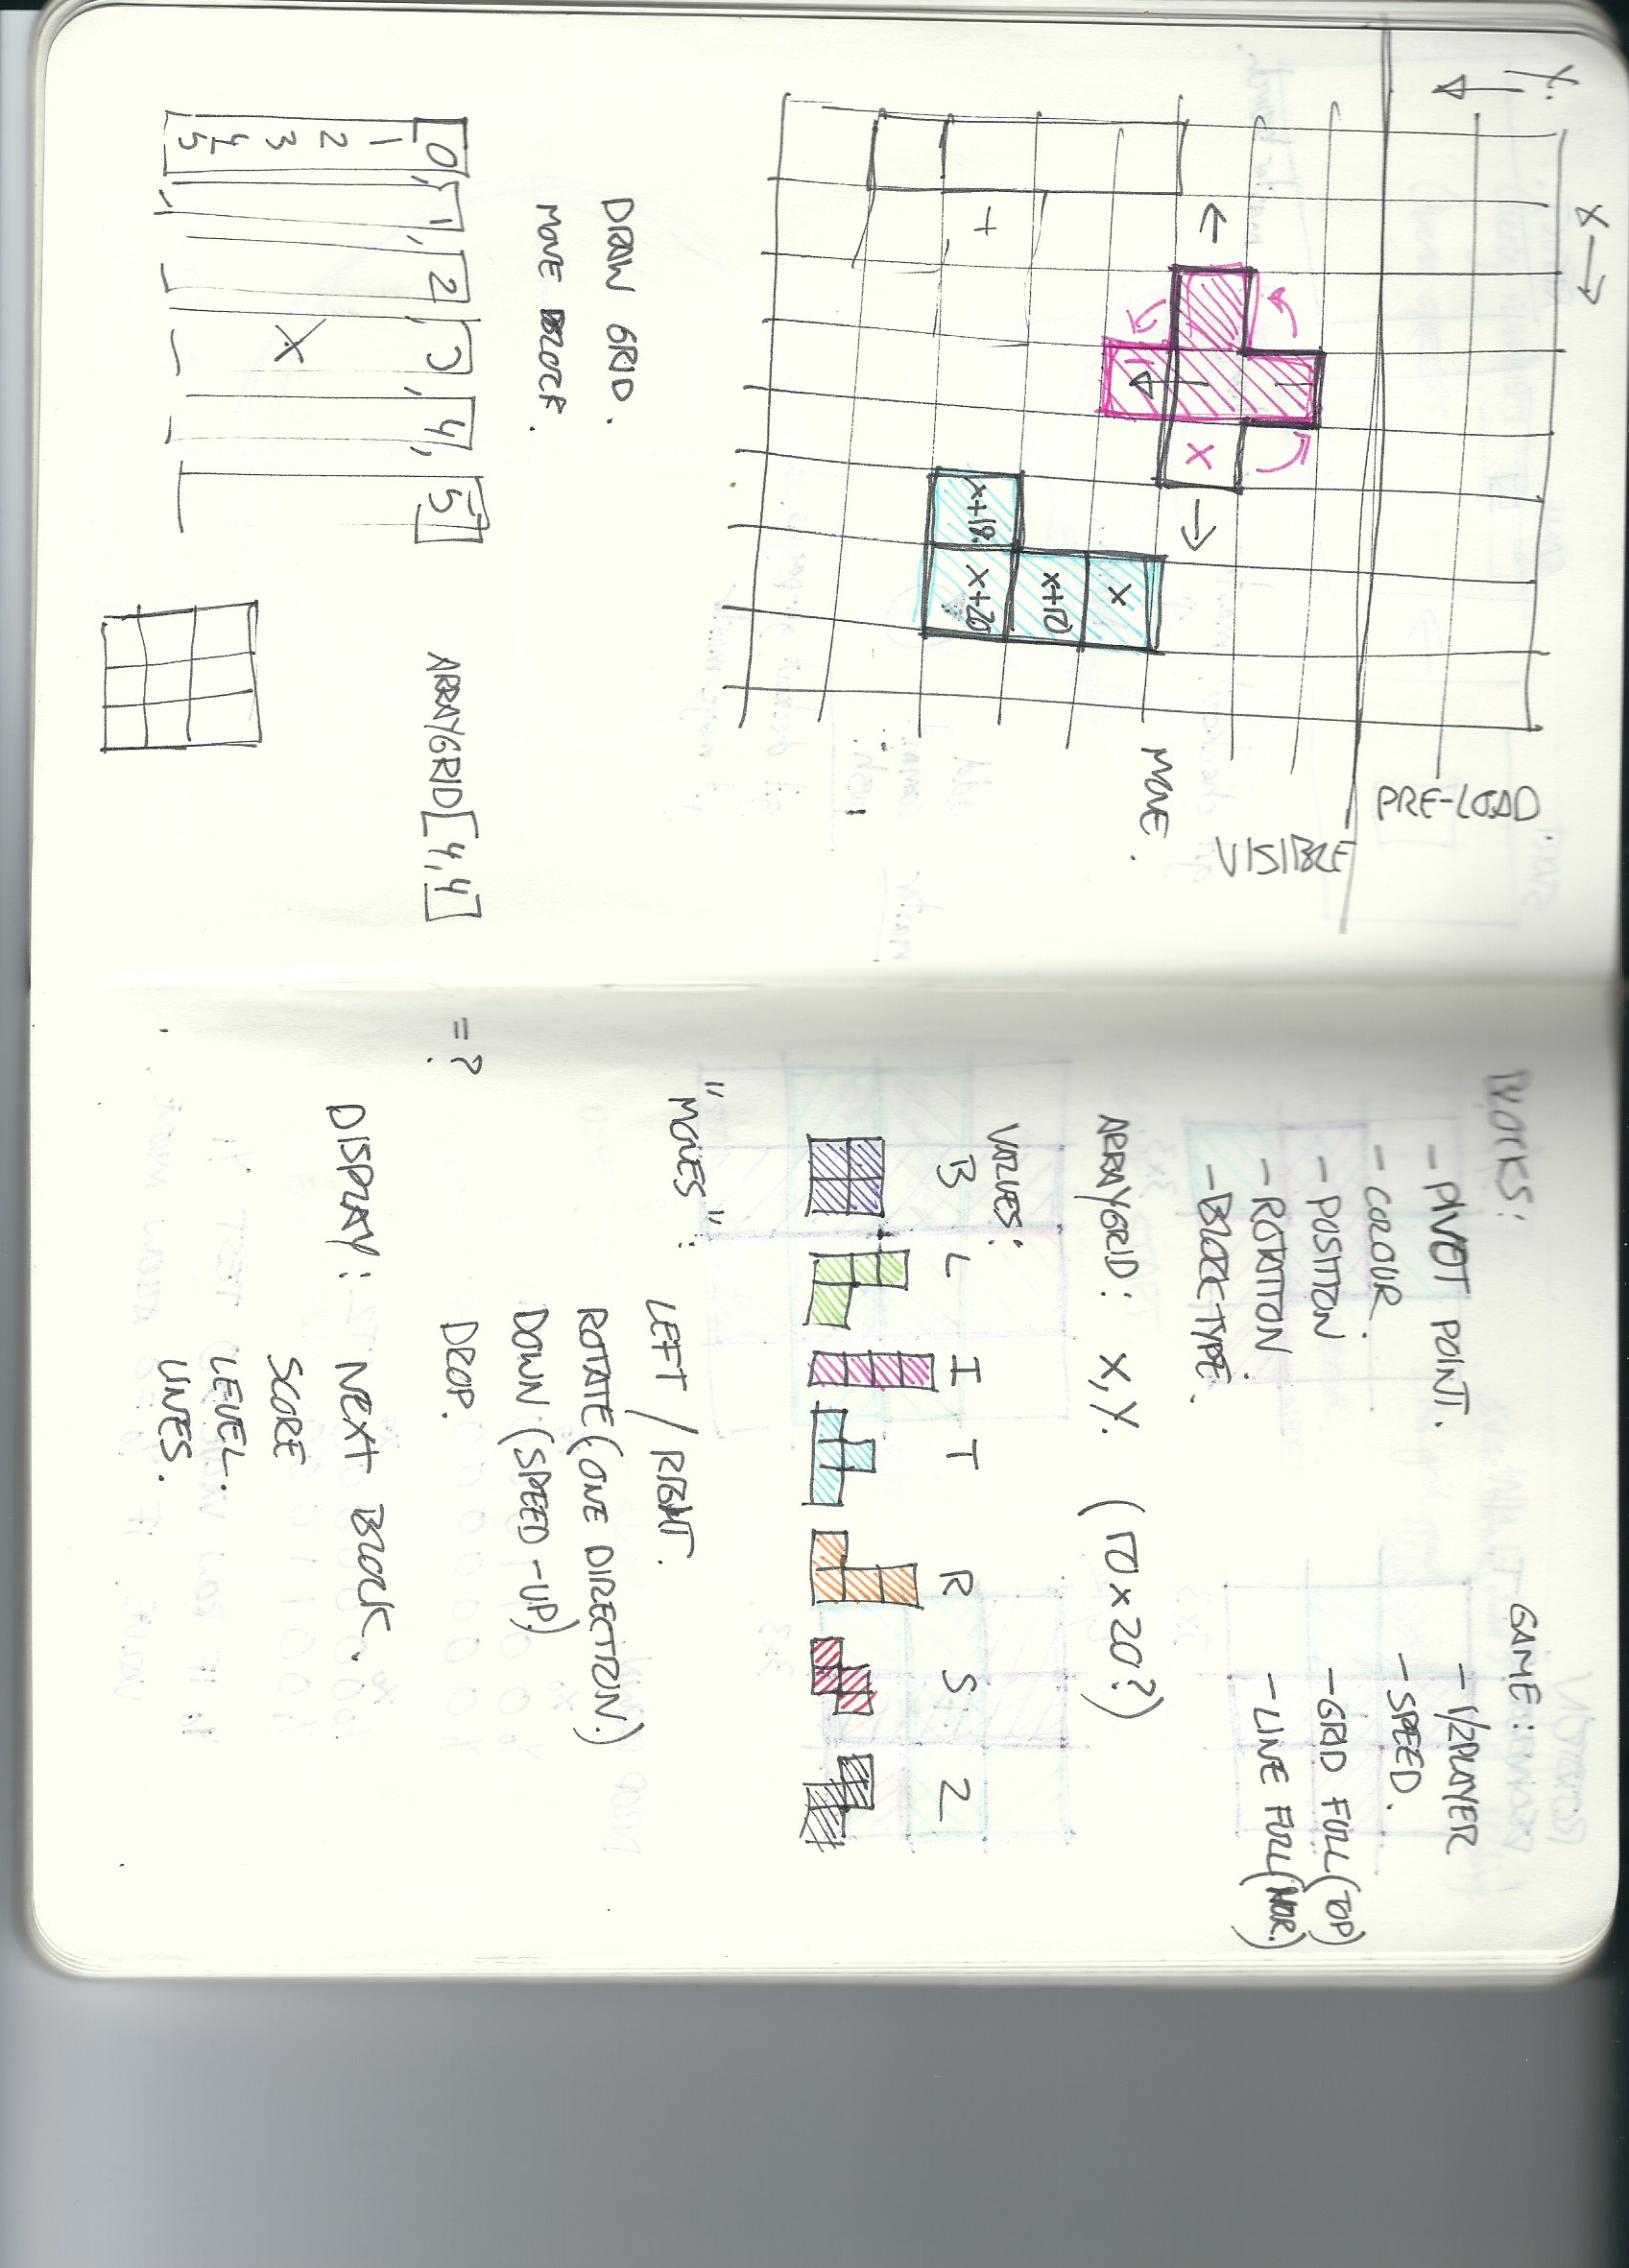 X →
Y.
PRE-LOAD.
VISIBLE
X
MOVE.
X
X+10
X+19. X+20
+
DRAW GRID.
MOVE BLOCK.
[0, 1, 2, 3, 4, 5]
1
2
3 X
4
5
ARRAYGRID[4,4] = ?
BLOCKS:
- PIVOT POINT.
- COLOUR.
- POSITION
- ROTATION.
- BLOCKTYPE.
GAME:
- 1/2PLAYER
- SPEED.
- GRID FULL (TOP)
- LINE FULL (HOR.)
ARRAYGRID: X,Y. (10 x 20?)
VALUES:
B L I T R S Z
"MOVES":
LEFT / RIGHT.
ROTATE (ONE DIRECTION.)
DOWN (SPEED-UP)
DROP.
DISPLAY: NEXT BLOCK.
SCORE
LEVEL.
LINES.